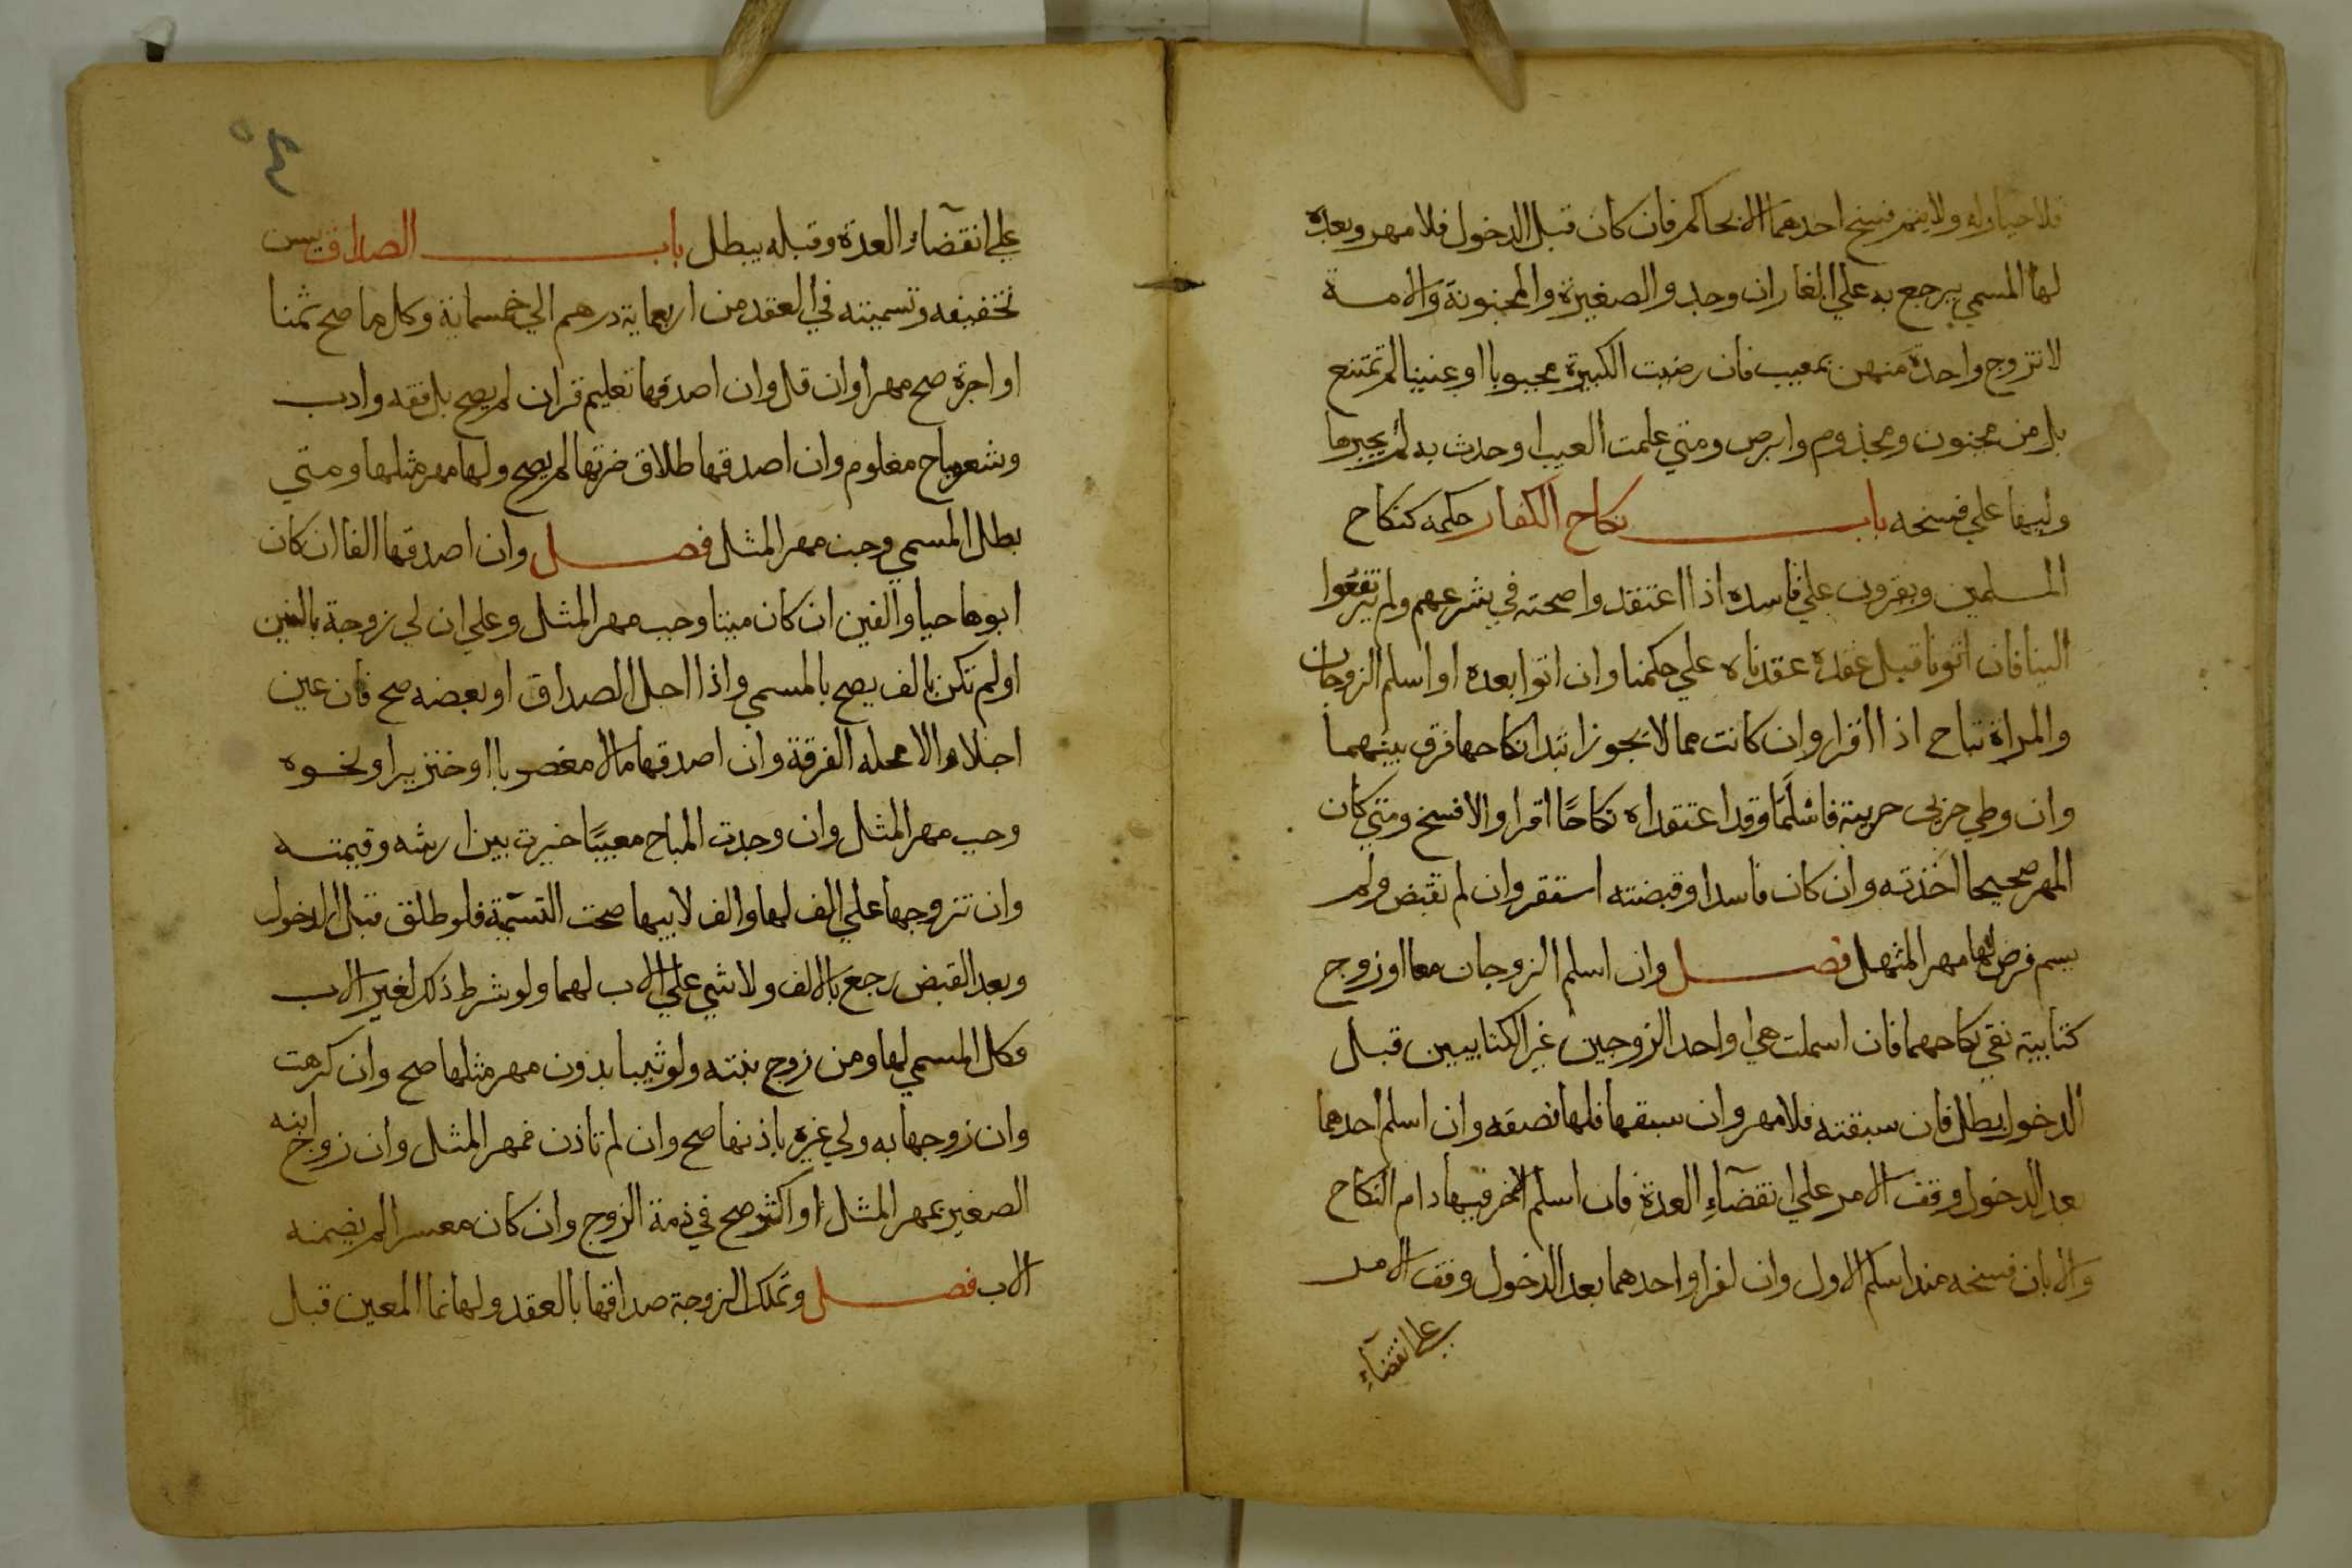 فلا خيار له ولا يتم فسخ احدهما الا بحاكم فان كان قبل الدخول فلا مهر وبعده
لها المسمي يرجع به علي الغار ان وجد والصغيرة والمجنونة والامة
لا تزوج واحدة منهن بمعيب فان رضيت الكبيرة مجبوبا او عنينا لم تمتنع
بل من مجنون ومجذوم وابرص ومتي علمت العيب او حدث به لم يجبرها
وليها علي فسخه باب نكاح الكفار حكمه كنكاح
المسلمين ويقرون علي فاسده اذا اعتقدوا صحته في شرعهم ولم يرتفعوا
الينا فان اتونا قبل عقده عقدناه علي حكمنا وان اتوا بعده او اسلم الزوجان
والمراة تباح اذا اقرا وان كانت مما لا يجوز ابتدا نكاحها فرق بينهما
وان وطي حربي حربية فاسلما وقد اعتقداه نكاحا اقرا والا فسخ ومتي كان
المهر صحيحا اخذته وان كان فاسدا وقبضته استقر وان لم تقبض ولم
يسم فرض لها مهر المثل فصل وان اسلم الزوجان معا او زوج
كتابية بقي نكاحهما فان اسلمت هي او احد الزوجين غير الكتابيين قبل
الدخول بطل فان سبقته فلا مهر وان سبقها فلها نصفه وان اسلم احدهما
بعد الدخول وقف الامر علي انقضاء العدة فان اسلم الاخر فيها دام النكاح
والا بان فسخه منذ اسلم الاول وان كفرا او احدهما بعد الدخول وقف الامر
علي انقضاء
علي انقضاء العدة وقبله يبطل باب الصداق يسن
تخفيفه وتسميته في العقد من اربعماية درهم الي خمسماية وكل ما صح ثمنا
او اجرة صح مهرا وان قل وان اصدقها تعليم قران لم يصح بل فقه وادب
وشعر مباح معلوم وان اصدقها طلاق ضرتها لم يصح ولها مهر مثلها ومتي
بطل المسمي وجب مهر المثل فصل وان اصدقها الفا ان كان
ابوها حيا والفين ان كان ميتا وجب مهر المثل وعلي ان لي زوجة بالفين
او لم تكن بالف يصح بالمسمي واذا اجل الصداق او بعضه صح فان عين
اجلا والا محله الفرقة وان اصدقها مالا مغصوبا او خنزيرا ونحوه
وجب مهر المثل وان وجدت المباح معيبا خيرت بين ارشه وقيمته
وان تزوجها علي الف لها والف لابيها صحت التسمية فلو طلق قبل الدخول
وبعد القبض رجع بالالف ولا شي علي الاب لهما ولو شرط ذلك لغير الاب
فكل المسمي لها ومن زوج بنته ولو ثيبا بدون مهر مثلها صح وان كرهت
وان زوجها به ولي غيره باذنها صح وان لم تاذن فمهر المثل وان زوج ابنه
الصغير بمهر المثل او اكثر صح في ذمة الزوج وان كان معسرا لم يضمنه
الاب فصل وتملك الزوجة صداقها بالعقد ولها نما المعين قبل